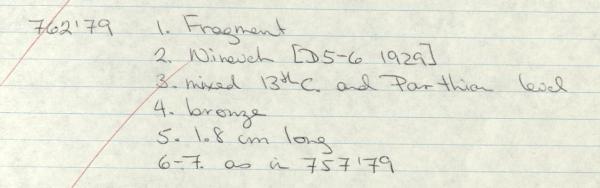 762'79 1. Fragment
2. Nineveh [D5-6 1929]
3. mixed 13thC. and Parthian level
4. bronze
5. 1.8 cm long
6-7. as in 757'79